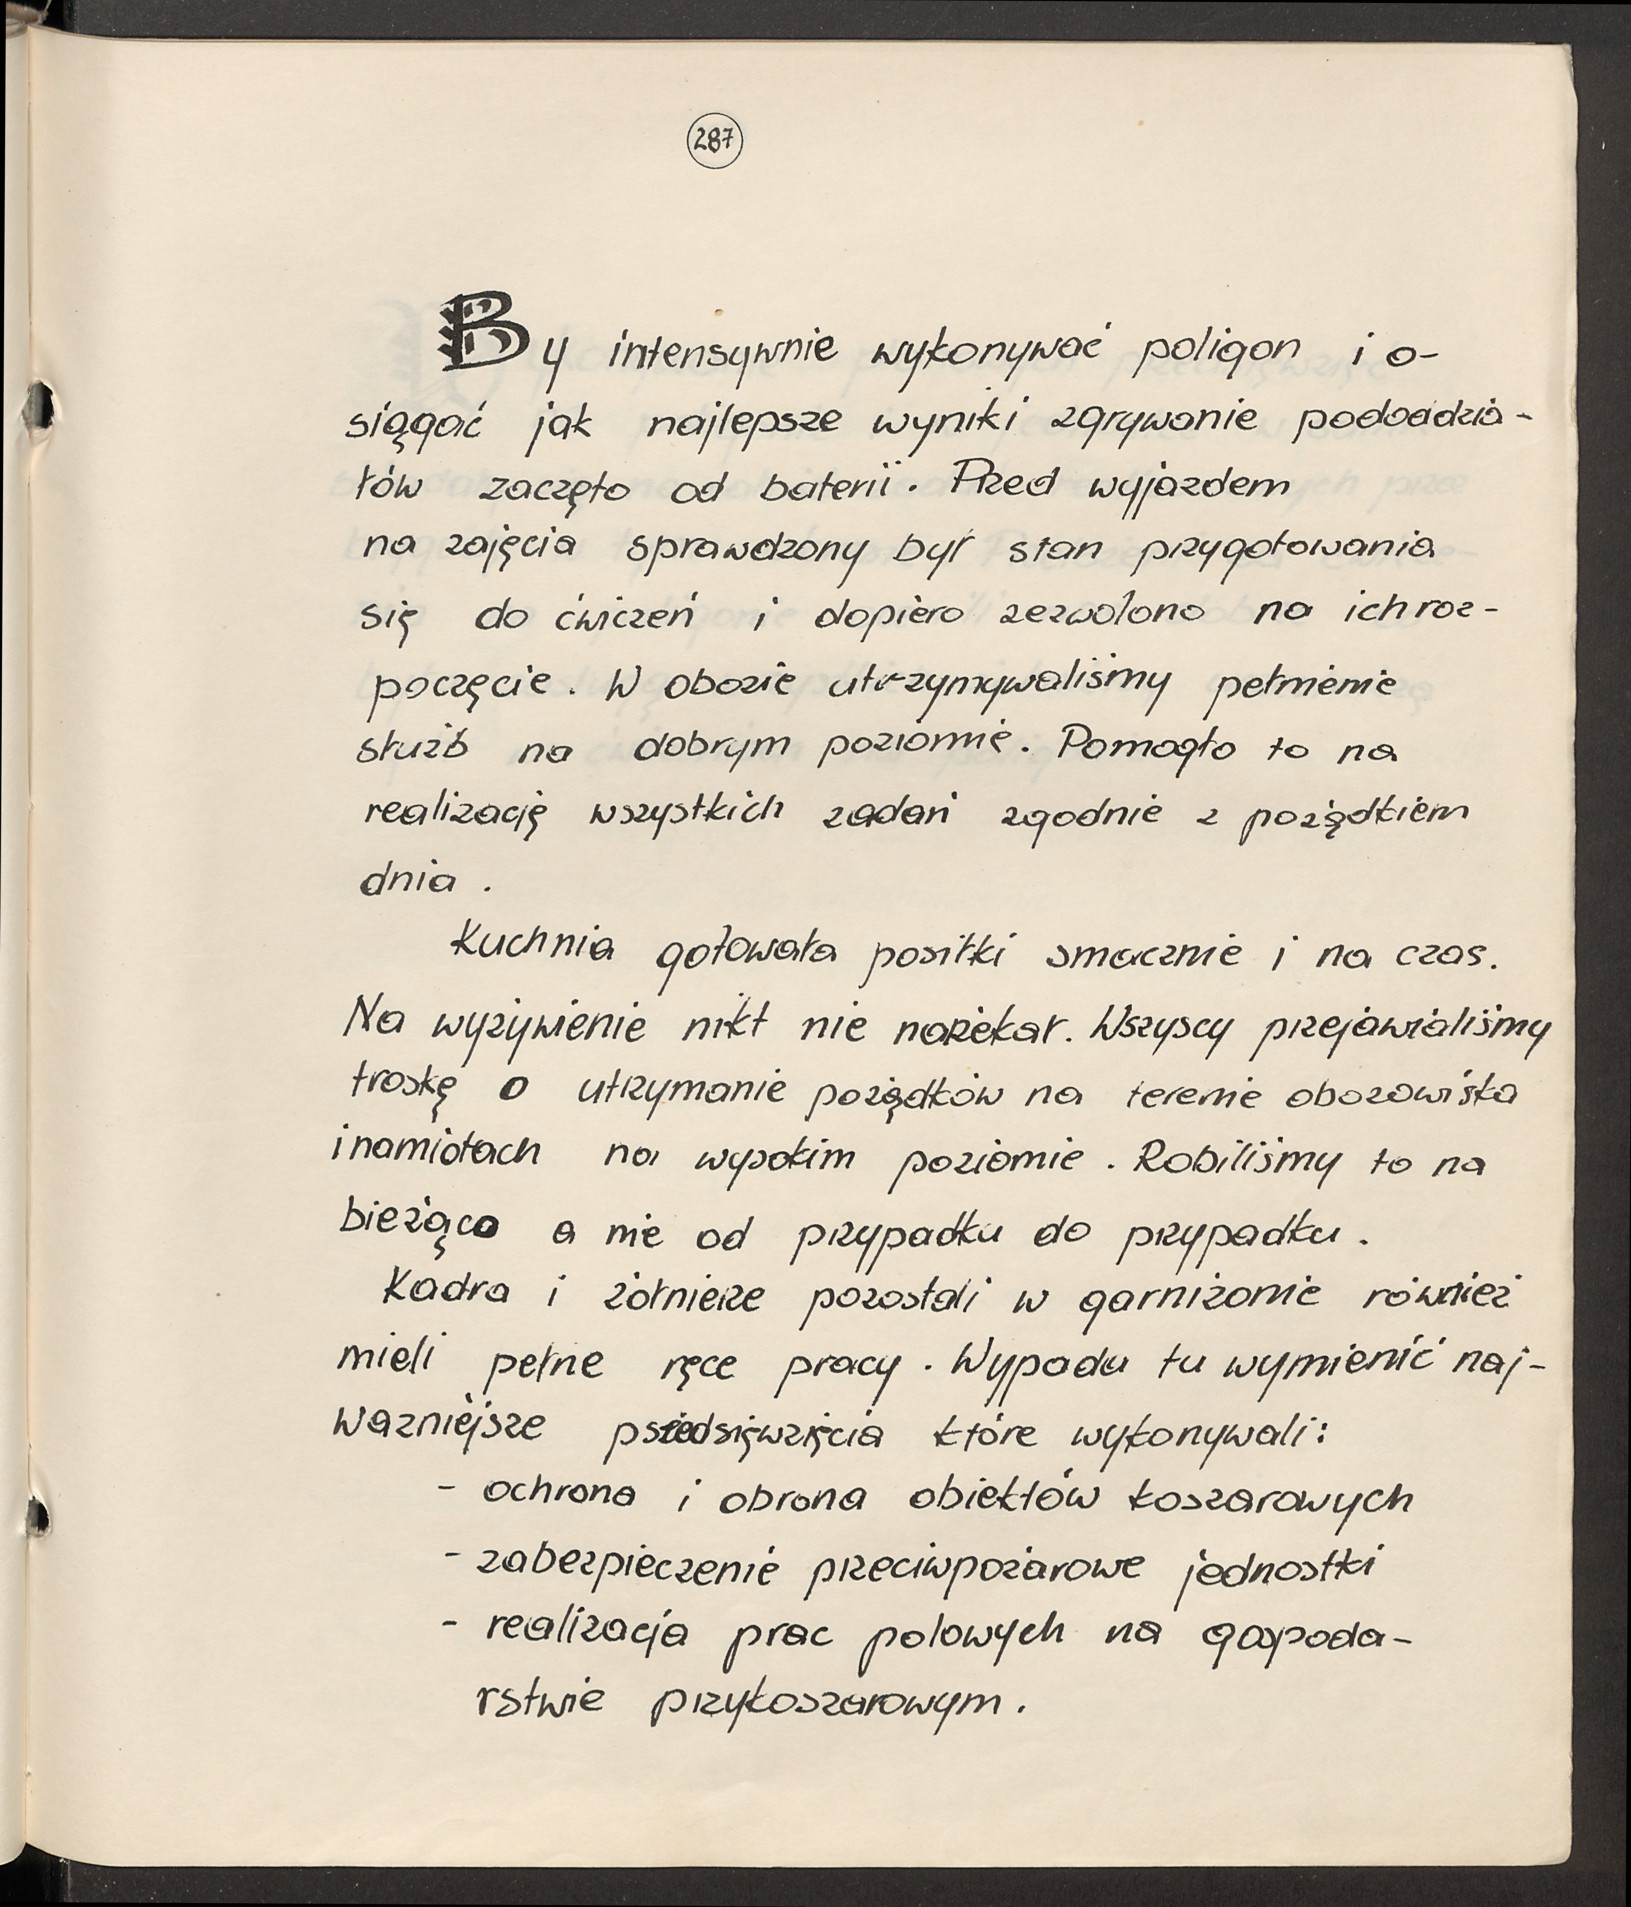 287
By intensywnie wykonywać poligon i o-
siągać jak najlepsze wyniki zgrywanie pododdzia-
łów zaczęto od baterii. Przed wyjazdem
na zajęcia sprawdzony był stan przygotowania
się do ćwiczeń i dopiero zezwolono na ich roz-
poczęcie. W obozie utrzymywaliśmy pełnienie
służb na dobrym poziomie. Pomogło to na
realizację wszystkich zadań zgodnie z pożądkiem
dnia.
Kuchnia gotowała posiłki smacznie i na czas.
Na wyżywienie nikt nie narzekał. Wszyscy przejawialiśmy
troskę o utrzymanie pożądków na terenie obozowiska
i namiotach na wysokim poziomie. Robiliśmy to na
bieżąco a nie od przypadku do przypadku.
Kadra i żółnierze pozostali w garnizonie również
mieli pełne ręce pracy. Wypada tu wymienić naj-
ważniejsze przedsięwzięcia które wykonywali:
- ochrona i obrona obiektów koszarowych
- zabezpieczenie przeciwpożarowe jednostki
- realizacja prac polowych na gospoda-
rstwie przykoszarowym.